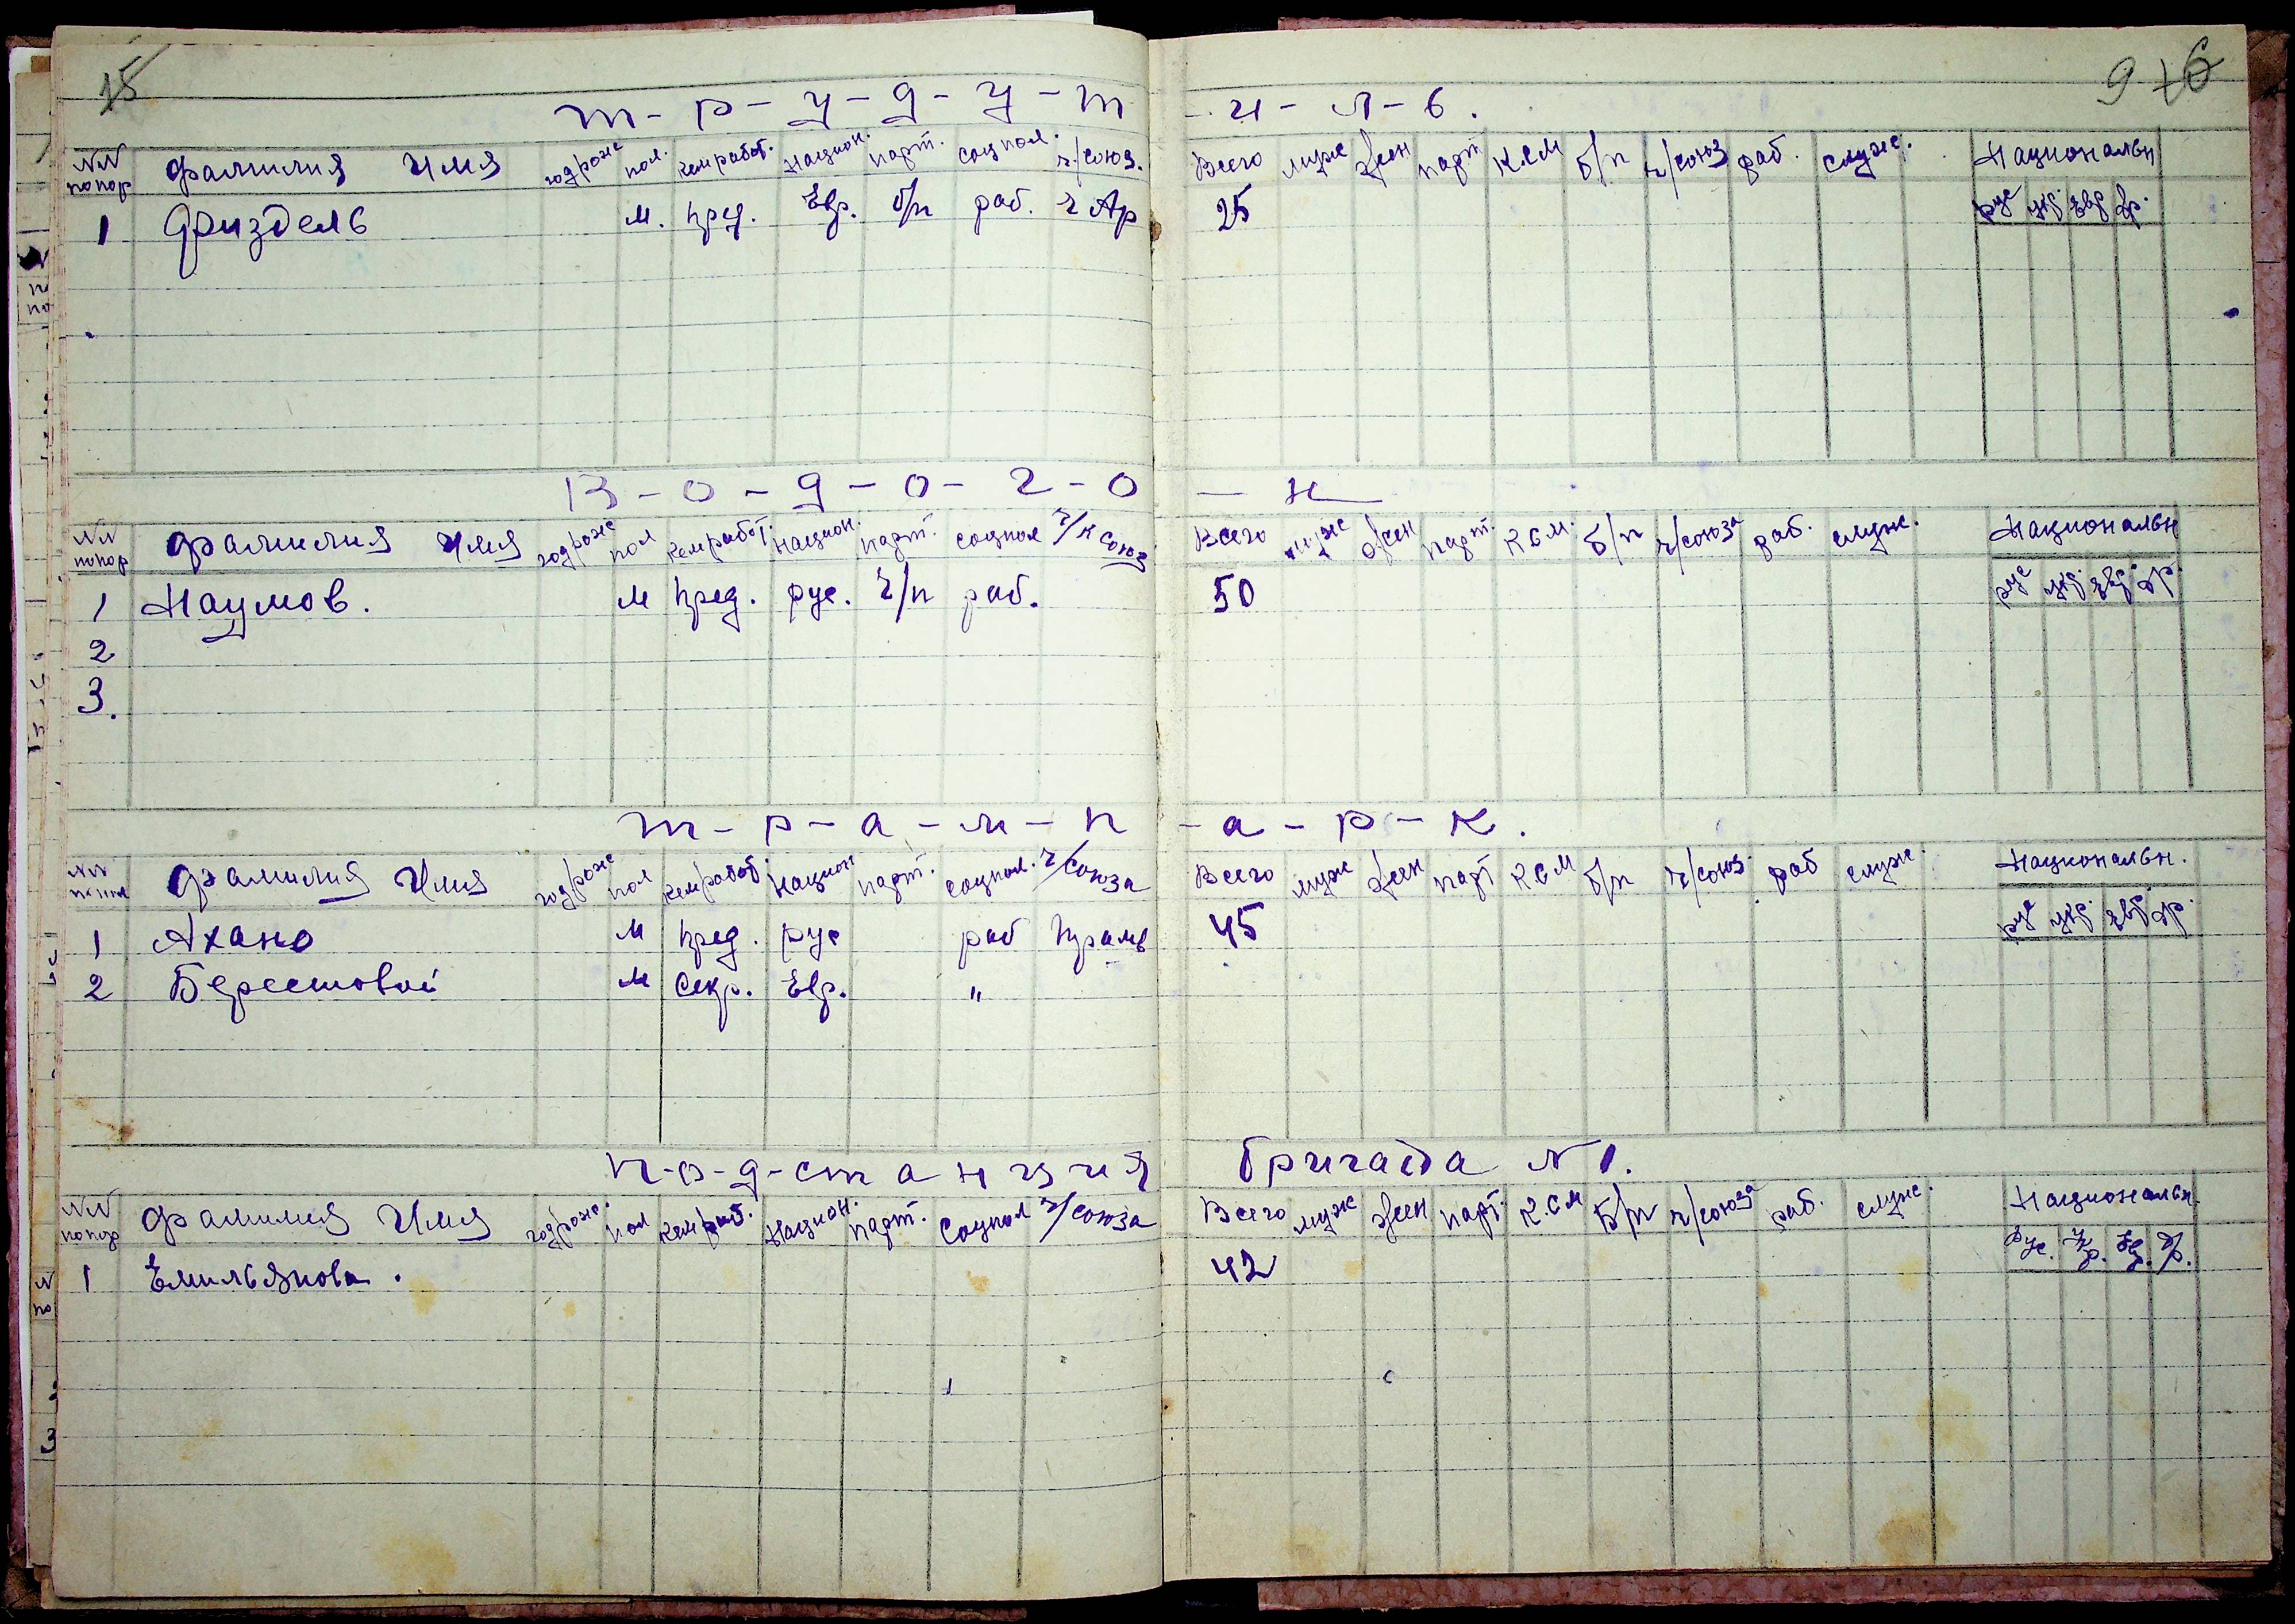 15
9 16
т-р-у-д-у-т -и-л-ь.
NN попор Фамилия Имя год рожд пол. кем работ. национ. парт. соц пол. ч/союз. Всего муж жен парт КСМ б/п ч/союз раб. служ. Националън
рус укр. евр др.
1 Физдель м. пред. Евр. б/п раб. 2 Ар 25
В-о-д-о-г-о - н
NN попор Фамилия Имя год рожд пол кем работ. национ. парт. соц пол ч/к союз Всего муж жен парт. КСМ. б/п ч/союза раб. служ. Националън
рус укр. евр. др.
1 Наумов. м пред. рус. ч/п раб. 50
2
3.
т-р-а-м-п -а-р-к.
NN Фамилия Имя год рожд пол кем работ. национ парт. соцпол. ч/союза Всего муж жен парт КСМ б/п ч/союз. раб служ. Националън.
рус укр. евр. др.
1 Ахано м пред. рус раб 45
2 Берестовой м Секр. Евр. "
п-о-д-станция Бригада N 1.
NN попор Фамилия Имя год рожд. пол кем раб. Национ. парт. Соцпол ч/союза Всего муж жен парт. К.С.М Б/п ч/союза раб. служ. Националън
Рус. Ук р. Ев р. Др.
1 Емильянова. 42